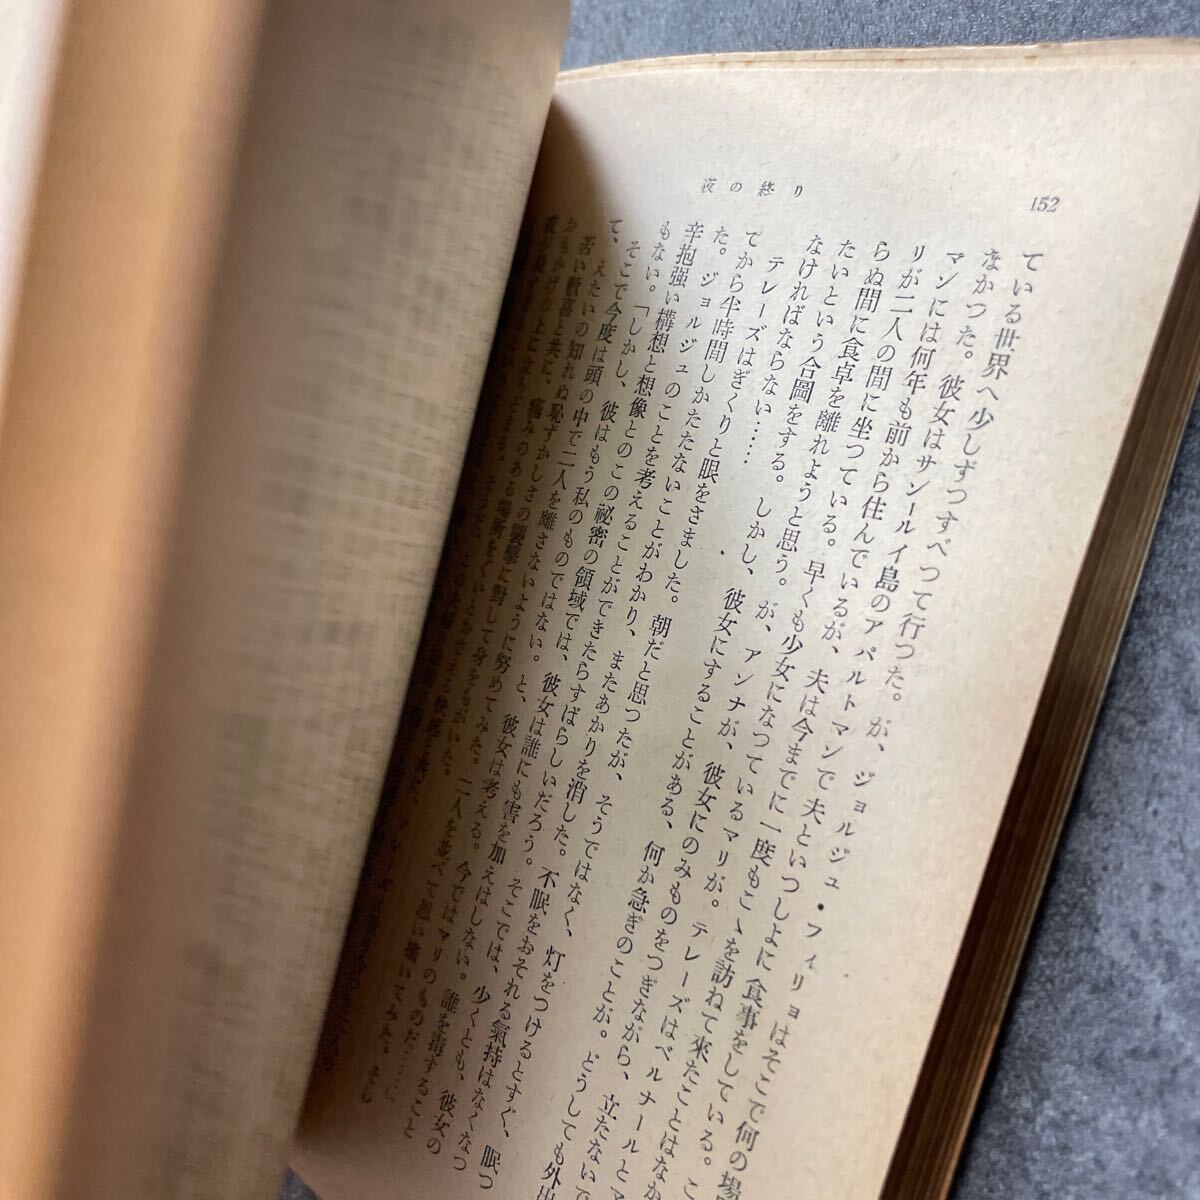 152
夜の終り
ている世界へ少しずつすべつて行つた。が、ジョルジュ・フィリョはそこで何の場
なかつた。彼女はサン=ルイ島のアパルトマンで夫といつしよに食事をしている。こ
マンには何年も前から住んでいるが、夫は今までに一度もこゝを訪ねて来たことはなか
リが二人の間に坐つている。早くも少女になつているマリが。テレーズはベルナールとマ
らぬ間に食卓を離れようと思う。が、アンナが、彼女にのみものをつぎながら、立たないで
たいという合圖をする。しかし、彼女にすることがある、何か急ぎのことが。どうしても外出
なければならない……
テレーズはぎくりと眼をさました。朝だと思つたが、そうではなく、灯をつけるとすぐ、眠つ
てから半時間しかたたないことがわかり、またあかりを消した。不眠をおそれる氣持はなくなつ
た。ジョルジュのことを考えることができたらすばらしいだろう。そこでは、少くとも、彼女の
辛抱強い構想と想像とのこの祕密の領域では、彼女は誰にも害を加えはしない。誰を毒すること
もない。「しかし、彼はもう私のものではない。と、彼女は考える。今ではマリのものだ……」
そこで今度は頭の中で二人を離さないように努めてみた。二人を並べて思い描いてみた。そし
て、えたいの知れぬ恥ずかしさの襲撃に對して身をもがいた。
苦い歡喜と共に、痛みのある場所を